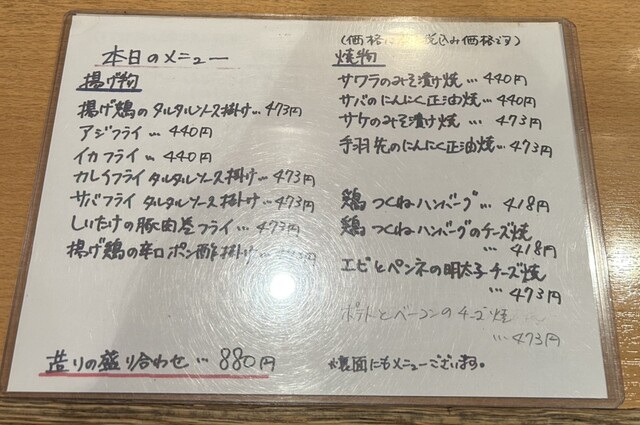 本日のメニュー
揚げ物
揚げ鶏のタルタルソース掛け…473円
アジフライ…440円
イカフライ…440円
カレイフライタルタルソース掛け…473円
サバフライタルタルソース掛け…473円
しいたけの豚肉巻フライ…473円
揚げ鶏の辛口ポン酢掛け…
造りの盛り合わせ…880円
(価格は 込み価格です)
焼物
サワラのみそ漬け焼…440円
サバのにんにく正油焼…440円
サケのみそ漬け焼…473円
手羽先のにんにく正油焼…473円
鶏つくねハンバーグ…418円
鶏つくねハンバーグのチーズ焼
…418円
エビとペンネの明太子チーズ焼
…473円
ポテトとベーコンのチーズ焼
…473円
※裏面にもメニューございます。